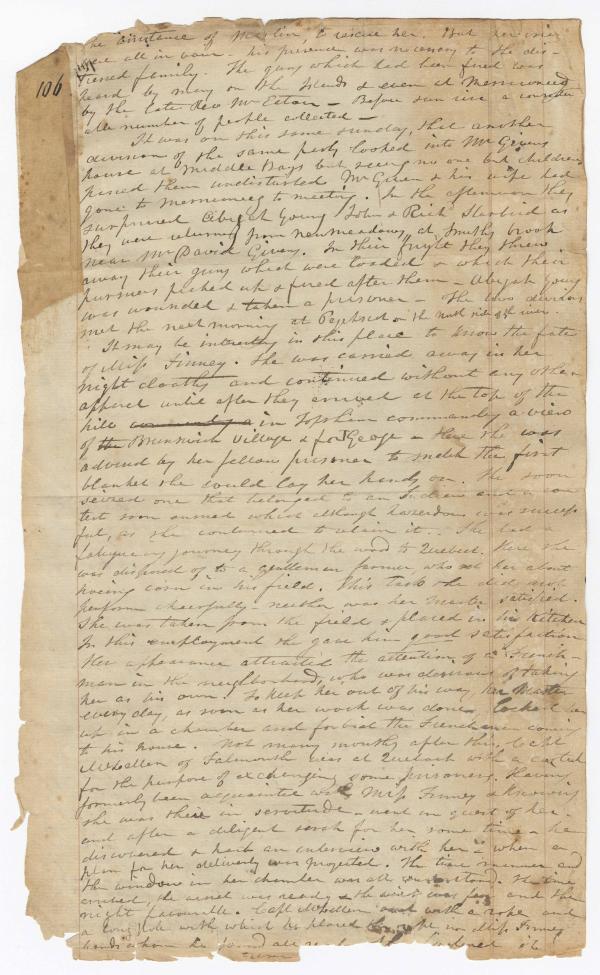 the assistance of Martin, to rescue her. But her cries
were all in vain - his presence was necessary to the dis-
106
tressed family. The guns which had been fired was
heard by many on the Islands & even at Merriconeag
by the late Rev Mr Eaton - Before sun rise a consider
able number of people collected -
It was on this same sunday, that another
division of the same party looked into Mr Givens
house at Middle Bays but seeing no one but children
passed them undisturbed Mr Given & his wife had
gone to Merriconeag to meeting. In the afternoon they
surprised Abijah Young John & Rich Starbird as
they were returning from newmeadows, at Smiths brook
near Mr David Givens. In their fright they threw
away their guns which were loaded & which their
pursuers picked up & fired after them - Abijah Young
was wounded & taken a prisoner - The two divisions
met the next morning at Pejepscot on the north side of the river.
It may be interesting in this place to know the fate
of Miss Finney. She was carried away in her
night cloaths and continued without any other
apparel until after they arrived at the top of the
hill in Topsham commanding a view
of the Brunswick Village & fort George - Here she was
advised by her fellow prisoner to snatch the first
blanket she could lay her hands on. She soon
seized one that belonged to an Indian and a con
test soon ensued which although hazardous was success
ful, as she continued to retain it.. She had a
fatigueing journey through the wood to Quebeck. Here she
was disposed of to a gentleman farmer, who set her about
hoeing corn in his field. This task she did not
perform cheerfully neither was her Master satisfied.
She was taken from the field & placed in his Kitchen
In this employment she gave him good satisfaction
Her appearance attracted the attention of a French-
man in the neighborhood, who was desirous of taking
her as his own. To keep her out of his way, her Master
every day, as soon as her work was done, locked her
up in a chamber and forbid the Frenchman coming
to his house. Not many months after this, Capt
McLellen of Falmouth was at Quebeck with a cartel
for the purpose of exchanging some prisoners. Having
formerly been acquainted with Miss Finney & knowing
she was there in servitude - went in quest of her -
and after a diligent serch for her some time - he
discovered & had an interview with her - when a
plan for her delivery was projected. The time manner and
the window in her chamber was all understood. The time
arrived, the vessel was ready & the wind was fair and the
night favourable. Capt McLellen went with a rope and
a long pole with which he placed the rope in Miss Finney
hands whom he found all ready